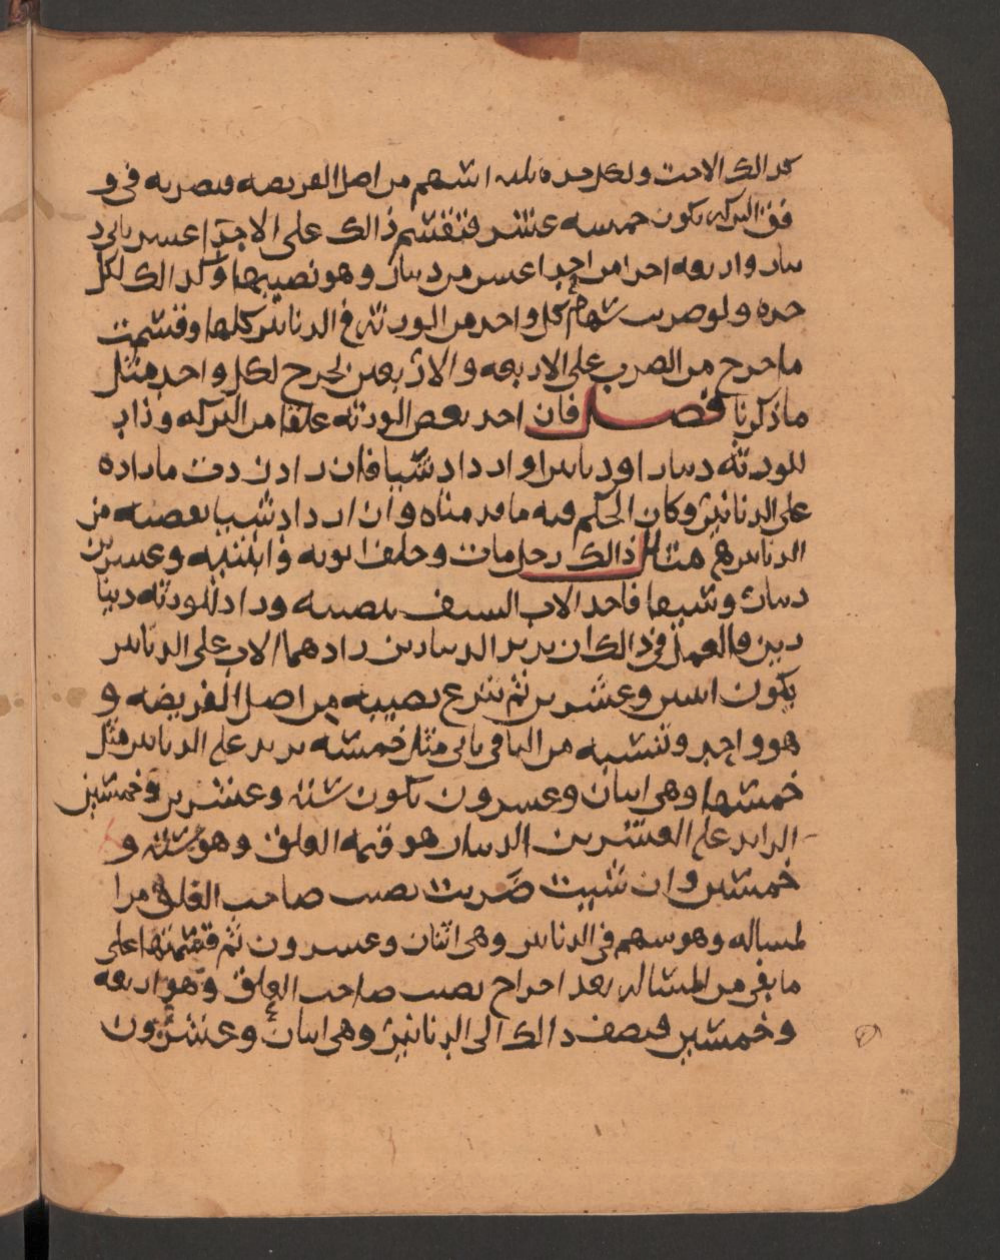 كذالك الاخت ولكل جده ثلثه اسهم من اصل الفريضه فتضربه في و
فق التركه يكون خمسه عشر فتقسم ذالك على الاحد اعشر ياتي د
ينار واربعه اجزا من احد اعشر من دينار وهو نصيبها وكذالك لكل
جده ولو ضربت سهام كل واحد من الورثه في الدنانير كلها وقسمت
ما خرج من الضرب على الاربعه والاربعين لخرج لكل واحد مثل
ما ذكرنا فصل فان اخذ بعض الورثه علقا من التركه وزاد
للورثه دينارا او دنانيرا و ازداد شيا فان زاد زدت ما زاده
على الدنانير وكان الحكم فيه ما قدمناه وان ازداد شيا نقصته من
الدنانير مثال ذالك رجل مات وخلف ابويه وابنتيه وعشرين
دينارا وسيفا فاخذ الاب السيف بنصيبه وزاد للورثه دينا
رين فالعمل في ذالك ان تزيد الدينارين زادهما الاب على الدنانير
يكون اثنين وعشرين ثم تنزع نصيبه من اصل الفريضه و
هو واحد وتنسبه من الباقي ياتي مثل خمسه تزيد على الدنانير مثل
خمسها وهي اثنان وعشرون يكون سته وعشرين وخمسين
الزايد على العشرين الدينار هو قيمه العلق وهو سته و
خمسين وان شيت ضربت نصيب صاحب العلق من ا
لمساله وهو سهم في الدنانير وهي اثنان وعشرون ثم قسمتها على
ما بقي من المساله بعد اخراج نصيب صاحب العلق وهو اربعه
وخمسين فنصف ذالك الى الدنانير وهي اثنان وعشرون